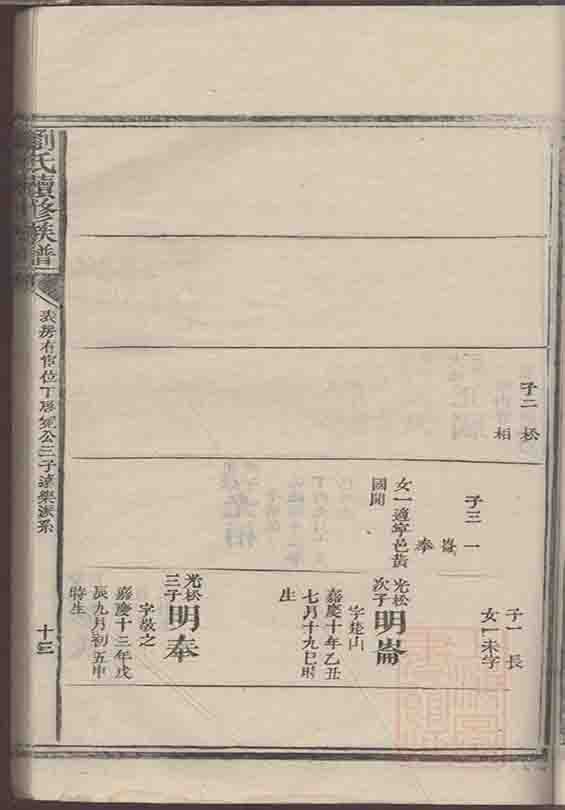 子二 松
相
子三 一
崙
奉
女一適寧邑黃
國開
子一 長
女一未字
光松
次子
明崙
字楚山
嘉慶十年乙丑
七月十九巳時
生
光松
三子
明奉
字敬之
嘉慶十三年戊
辰九月初五申
時生
劉氏續修族譜
公三子
派系
十三